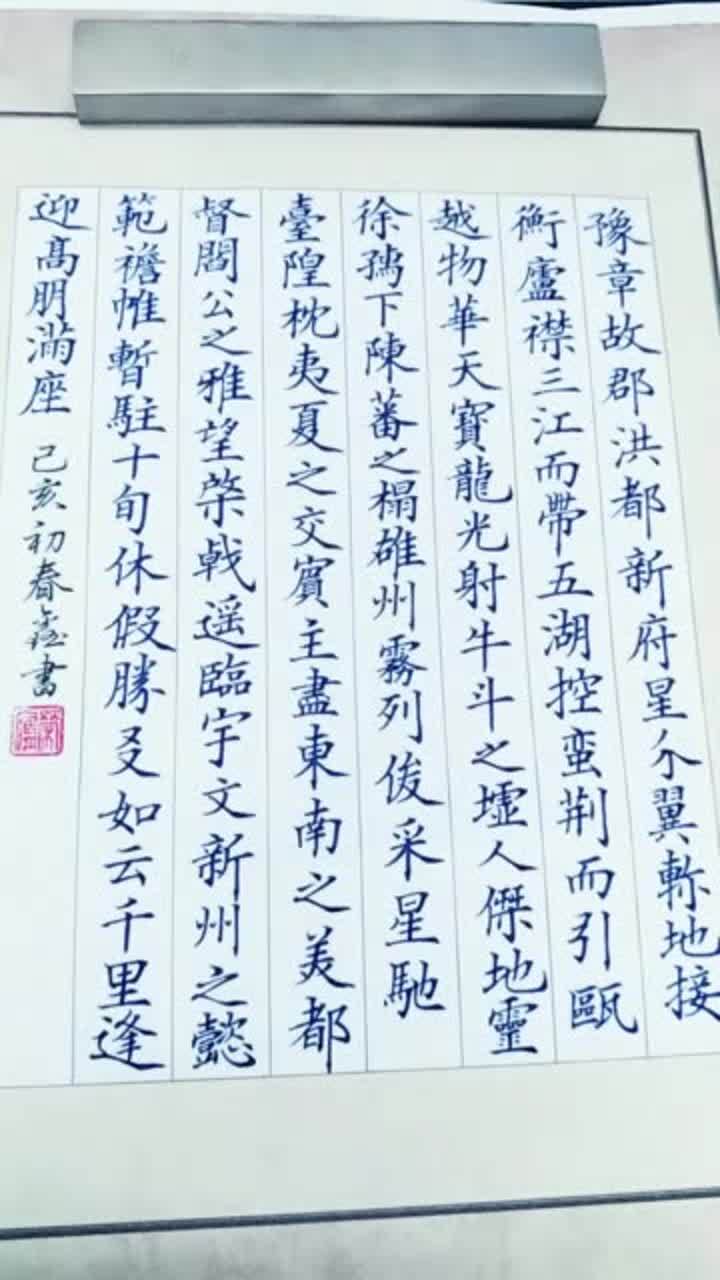 豫章故郡洪都新府星分翼軫地接
衡廬襟三江而帶五湖控蛮荆而引甌
越物華天寶龍光射牛斗之墟人傑地靈
徐孺下陳蕃之榻雄州霧列俊采星馳
臺隍枕夷夏之交賓主盡東南之美都
督閻公之雅望棨戟遥臨宇文新州之懿
範襜帷暫駐十旬休假勝友如云千里逢
迎高朋滿座 己亥初春鑫書